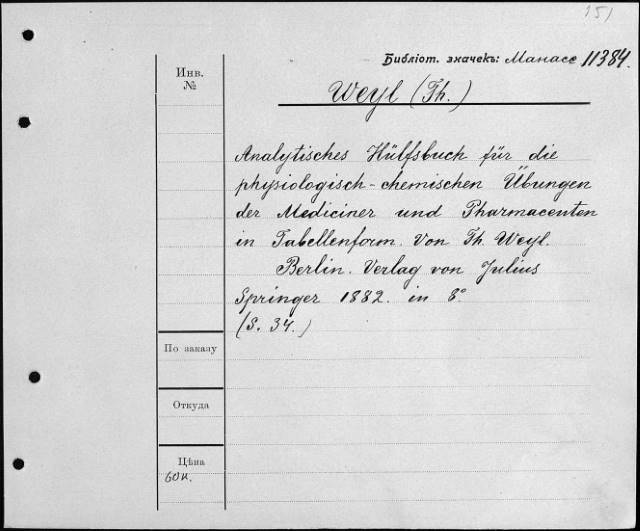 151
Библіот. значекъ: Манасс 11384.
Инв.
№
Weyl (Th.)
Analytisches Hülfsbuch für die
physiologisch-chemischen Übungen
der Mediciner und Pharmacenten
in Tabellenform. Von Th. Weyl.
Berlin. Verlag von Julius
Springer 1882. in 8°
(S. 34.)
По заказу
Откуда
Цѣна
60к.